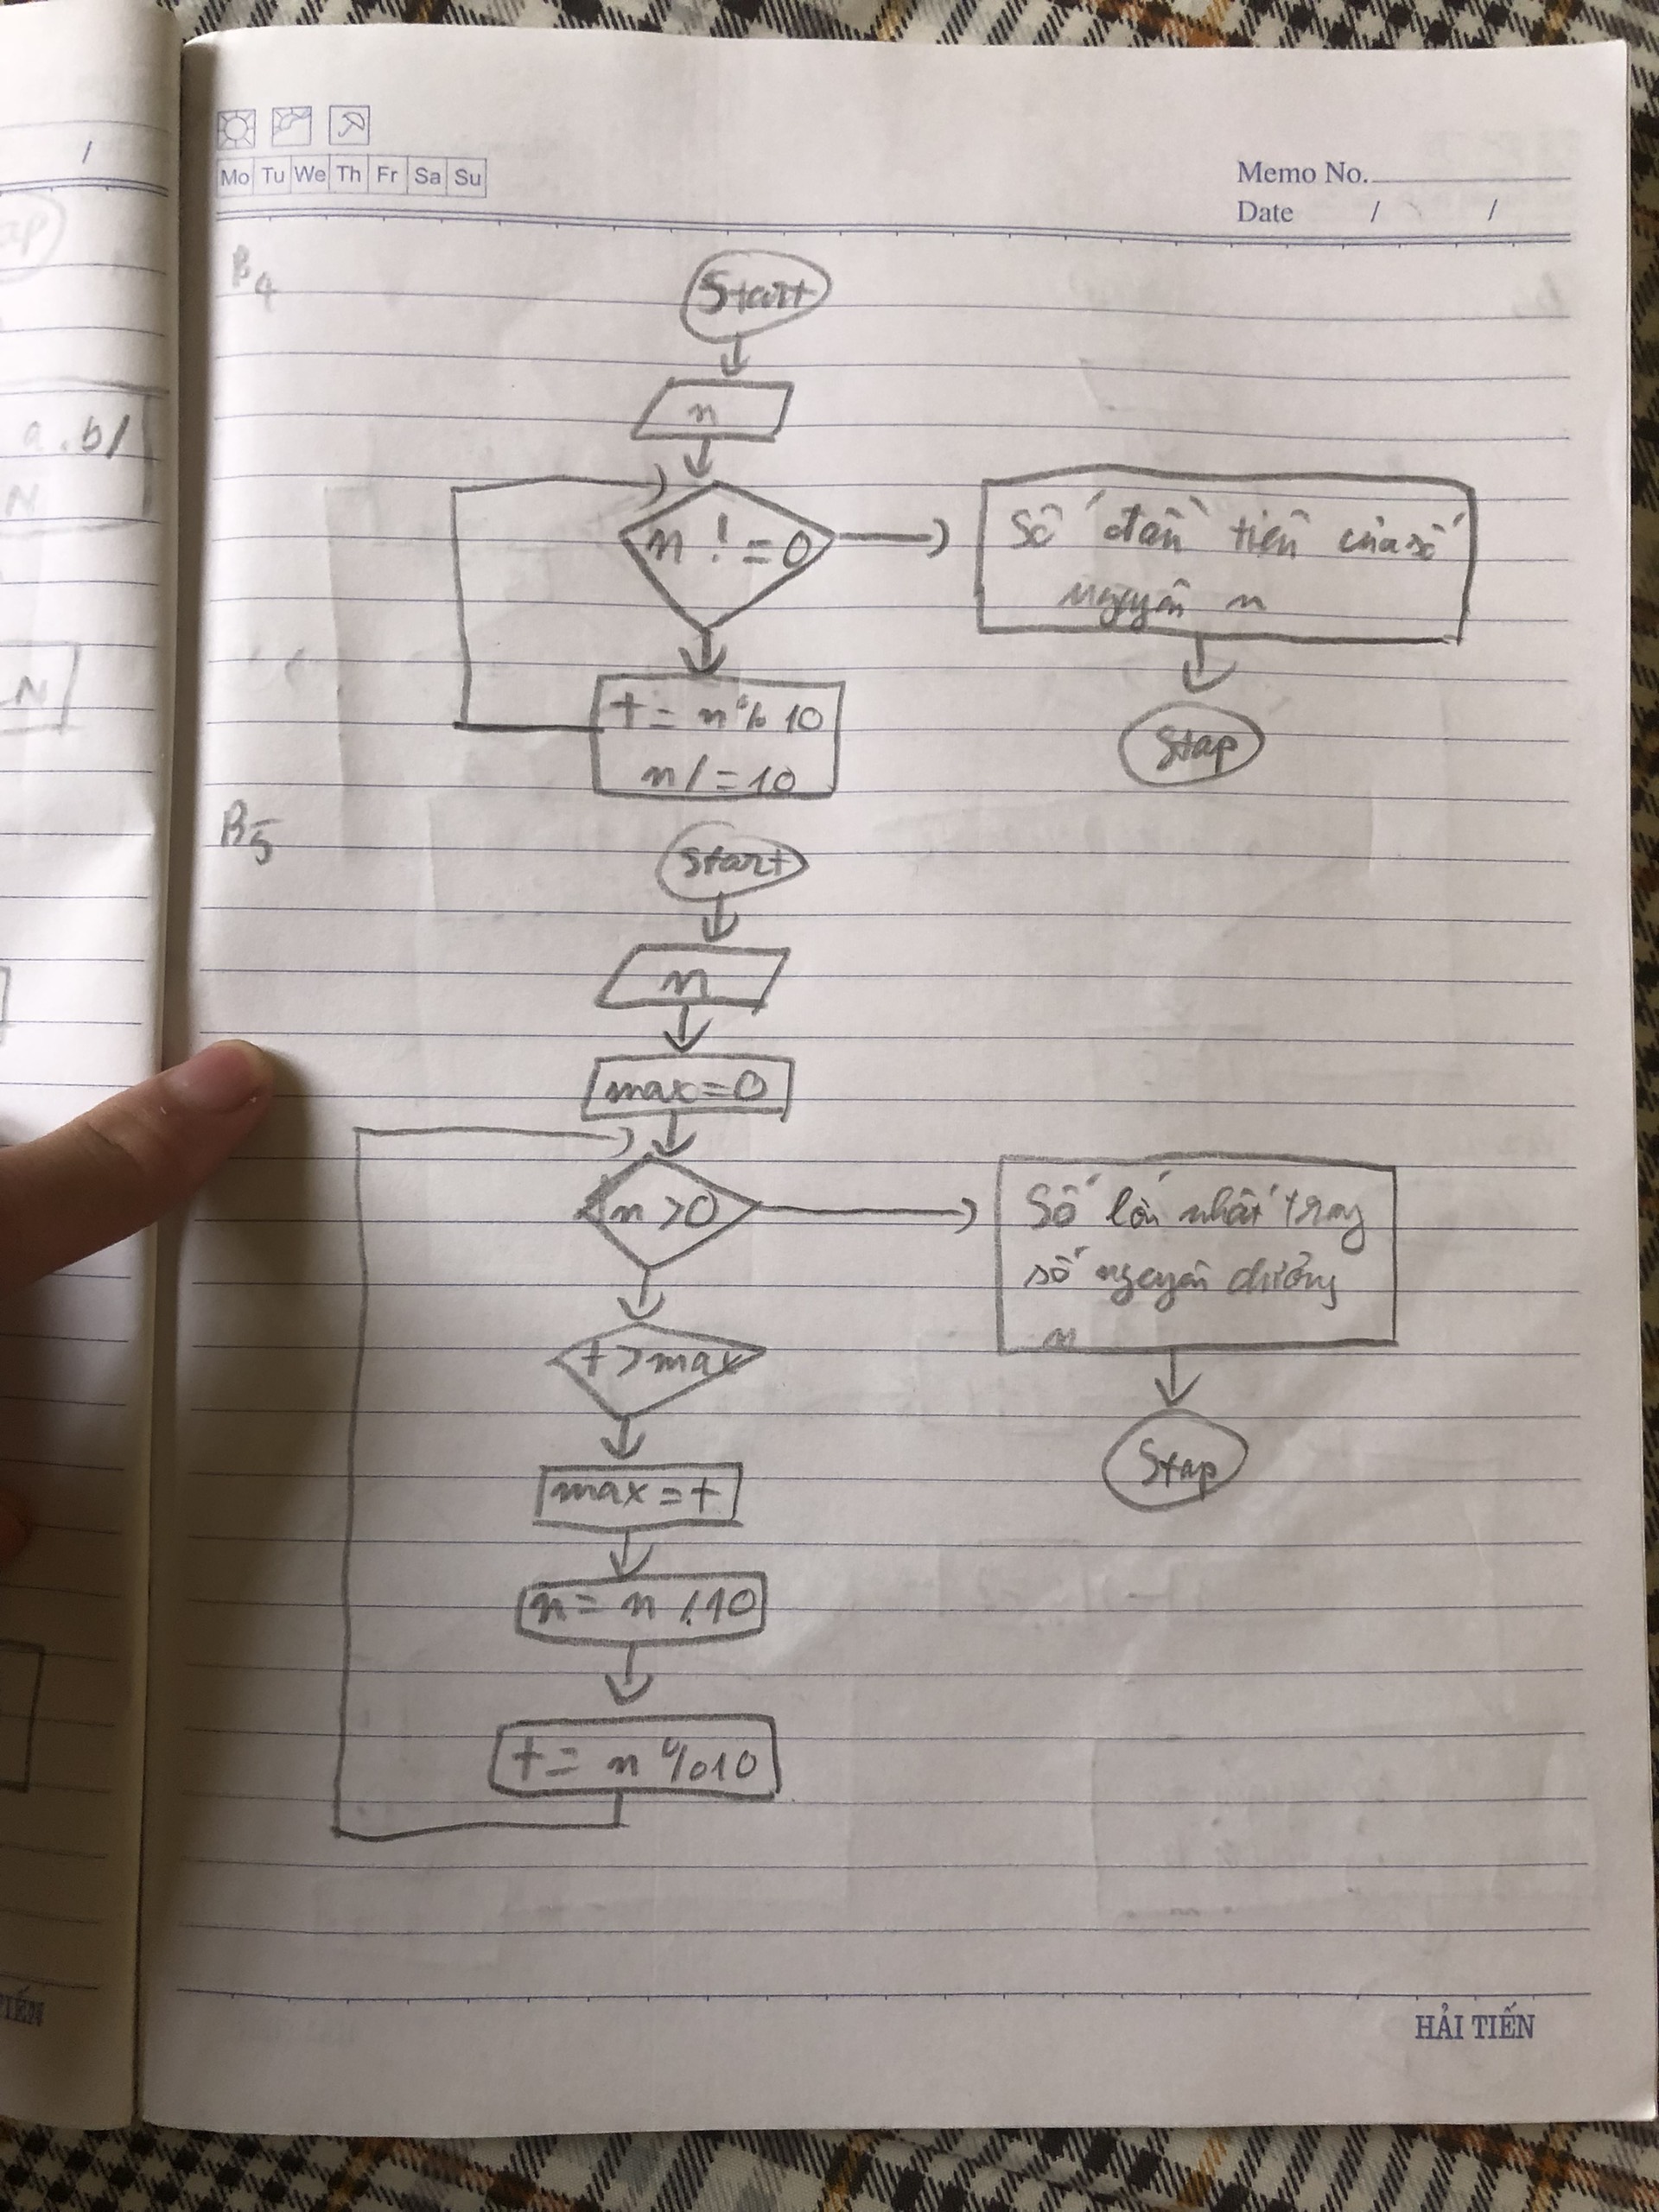 /
ap
a.b/
N
N
IẾN
Mo Tu We Th Fr Sa Su
Memo No.
Date / /
B4
Start
n
n != 0
Số đầu tiên của số
nguyên n
t = n % 10
n /= 10
Stap
B5
Start
n
max = 0
n > 0
Số lớn nhất trong
số nguyên dương
n
t > max
Stap
max = t
n = n /.10
t = n % 10
HẢI TIẾN